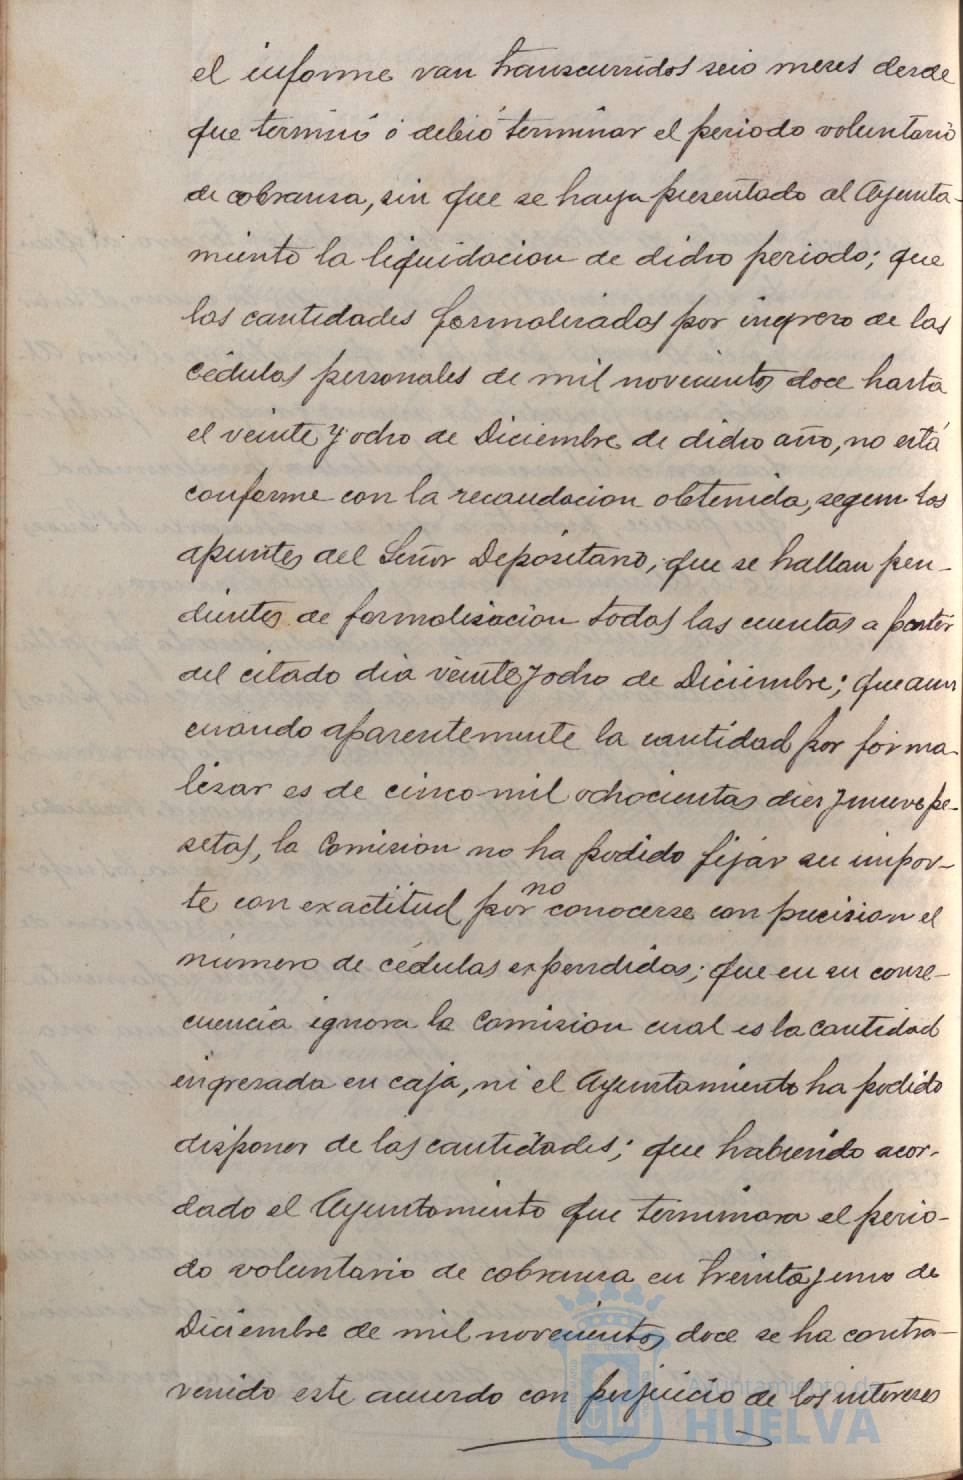 el informe van transcurridos seis meses desde
que terminó ó debió terminar el periodo voluntario
de cobransa, sin que se haya presentado al Ayunta-
miento la liquidacion de dicho periodo; que
las cantidades formalisadas por ingreso de las
cédulas personales de mil novecientos doce hasta
el veinte y ocho de Diciembre de dicho año, no está
conforme con la recaudacion obtenida, segun los
apuntes del Señor Depositario; que se hallan pen-
dientes de formalisacion todas las cuentas a partir
del citado dia veinte y ocho de Diciembre; que aun
cuando aparentemente la cantidad por forma-
lisar es de cinco mil ochocientas dies y nueve pe-
setas, la Comision no ha podido fijar su impor-
te con exactitud por no conocerse con precision el
número de cédulas expendidas; que en su conse-
cuencia ignora la Comision cual es la cantidad
ingresada en caja, ni el Ayuntamiento ha podido
disponer de las cantidades; que habiendo acor-
dado el Ayuntamiento que terminara el perio-
do voluntario de cobransa en treinta y uno de
Diciembre de mil novecientos doce se ha contra-
venido este acuerdo con perjuicio de los intereses
Ayuntamiento de
HUELVA